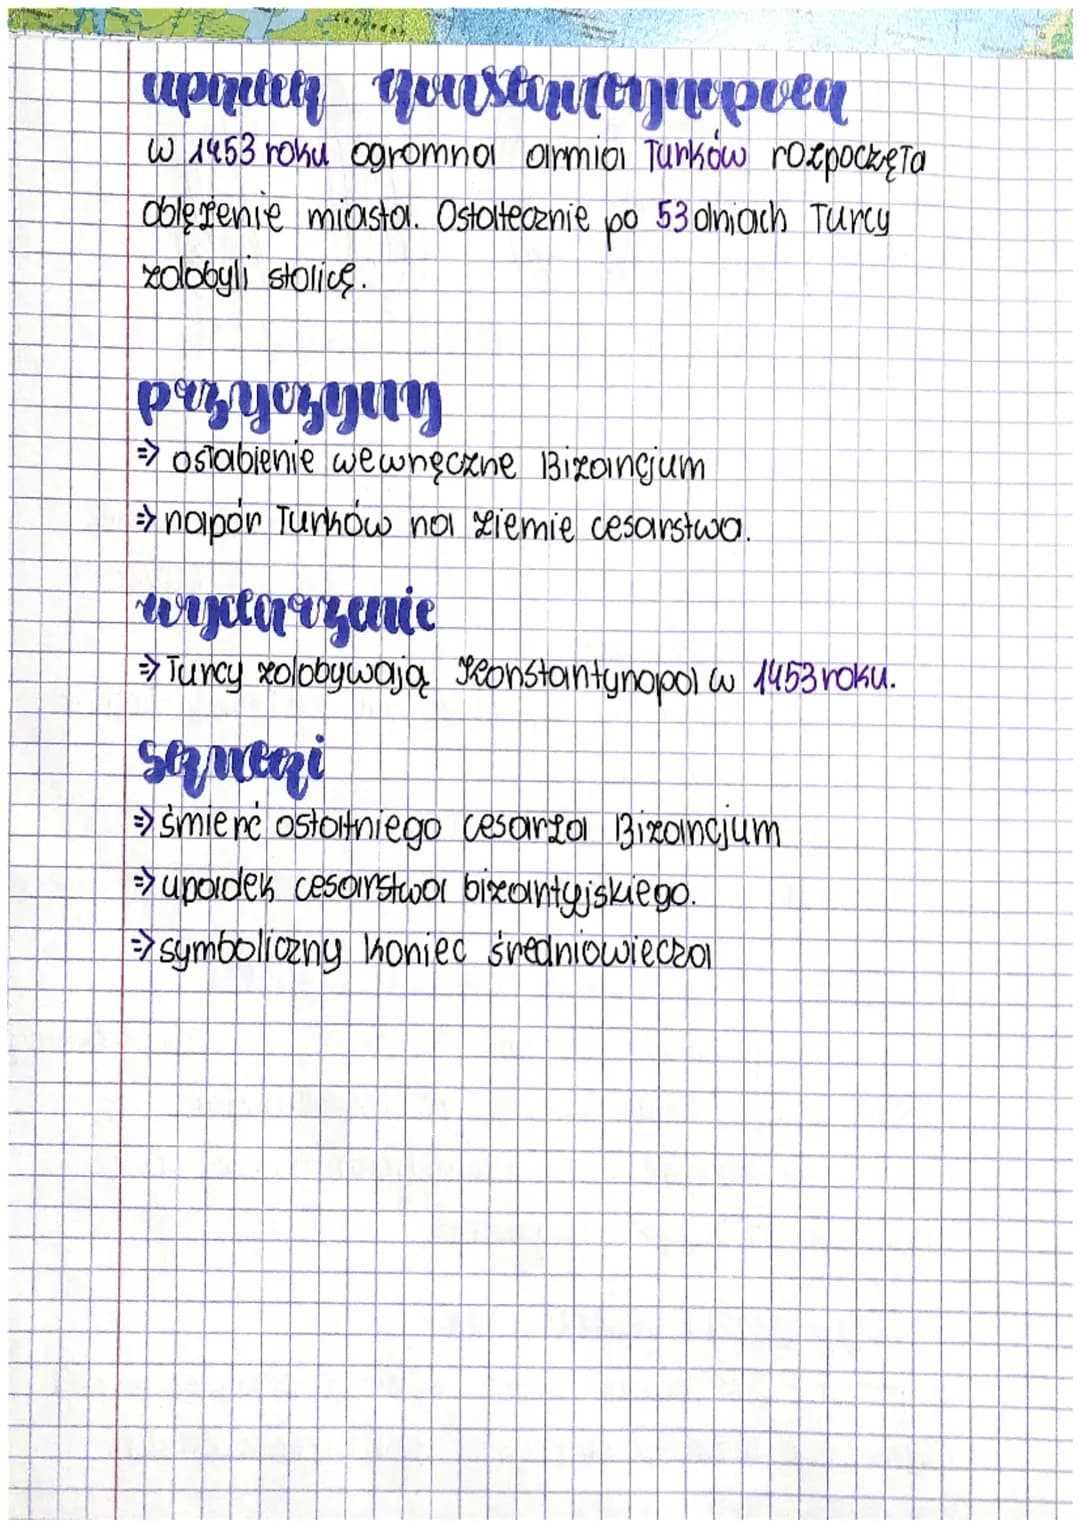 upadek konstantynopola
w 1453 roku ogromna armia Turków rozpoczęła
oblężenie miasta. Ostatecznie po 53 dniach Turcy
zdobyli stolicę.
przyczyny
=> osłabienie wewnęczne Bizancjum
=> napór Turków na ziemie cesarstwa.
wydarzenie
=> Turcy zdobywają Konstantynopol w 1453 roku.
skutki
=> śmierć ostatniego cesarza Bizancjum
=> upadek cesarstwa bizantyjskiego.
=> symboliczny koniec średniowiecza